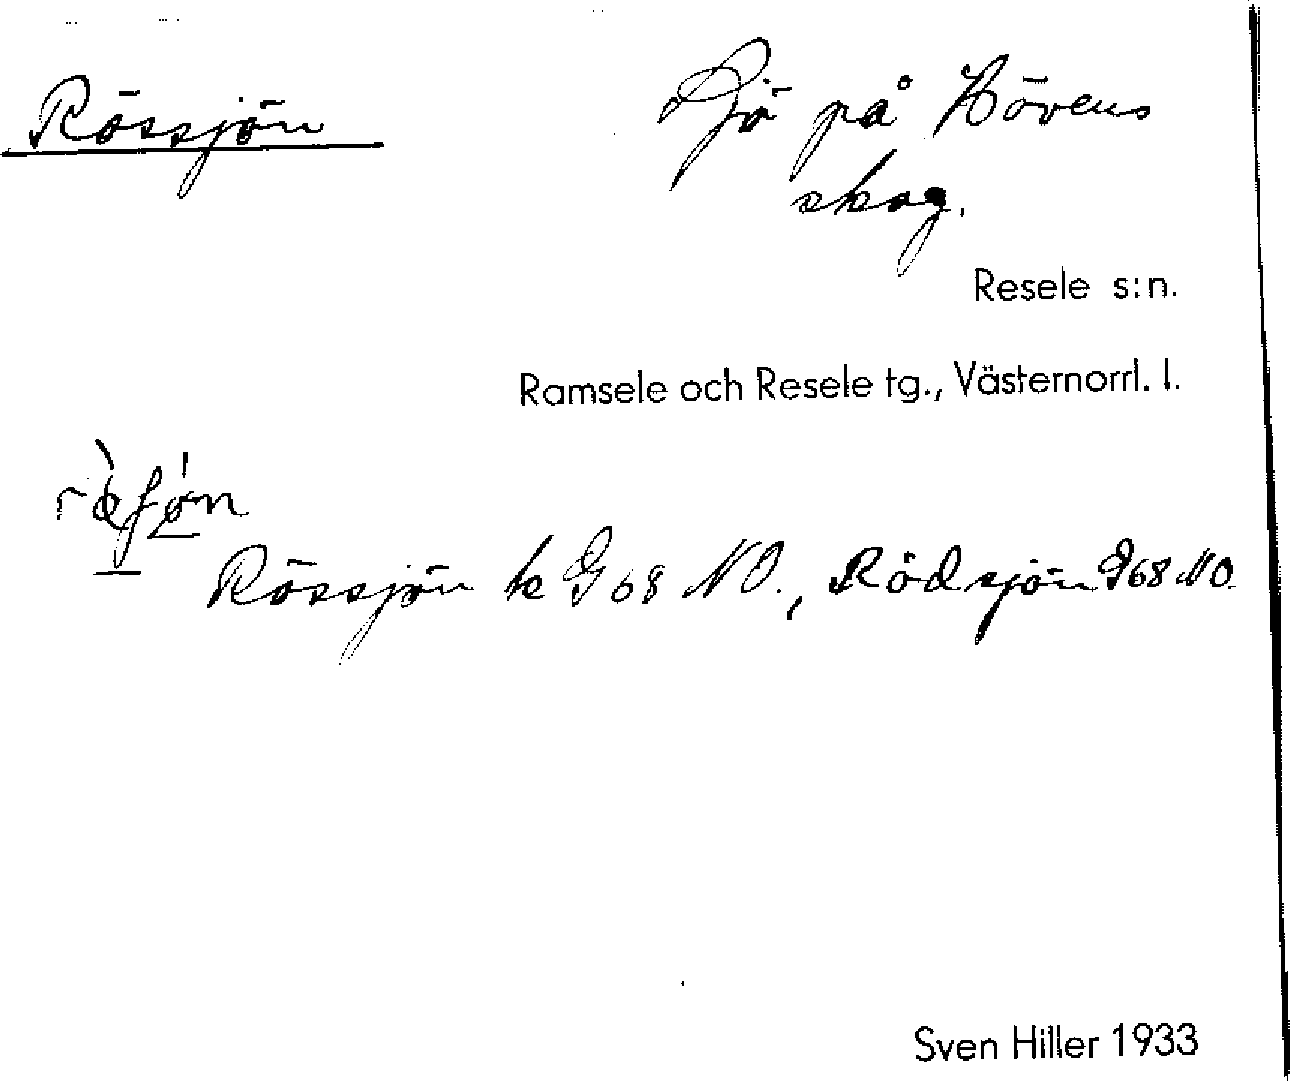 Rössjön
Sjö på Hövens
skog.
Resele s:n.
Ramsele och Resele tg., Västernorrl. l.
Rössjön k G 68 NO., Rödsjön G 68 NO
Sven Hiller 1933